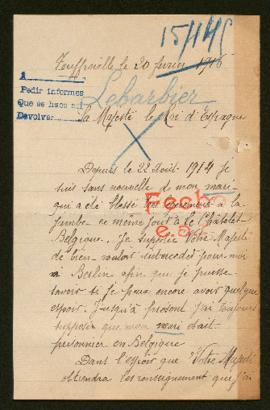 15/145
le 20 février 1916
A
Pedir informes
Que se hace así
Devolver
Lebarbier
Sa Majesté le Roi d'Espagne
Depuis le 22 Août 1914 je
suis sans nouvelle de mon mari
qui a été blessé à la
jambe ce même jour à le Châtelet
Fech
Belgique. Je supplie Votre Majesté
de bien vouloir intercéder pour moi
à Berlin afin que je puisse
savoir si je puis encore avoir quelque
espoir. Jusqu'à présent j'ai toujours
supposé que mon mari était
prisonnier en Belgique
Dans l'espoir que Votre Majesté
obtiendra les renseignements que j'ai